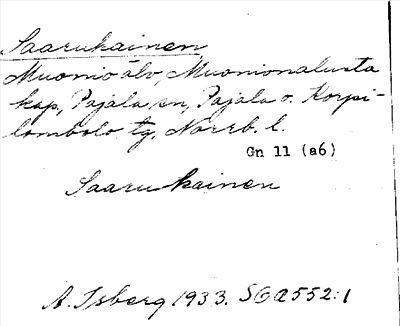 Saarukainen
Muonio älv, Muonionalusta
kap, Pajala sn, Pajala o. Korpi-
lombolo tg, Norrb. l.
Gn 11 (a6)
Saarukainen
A. Isberg 1933. SOA 552:1